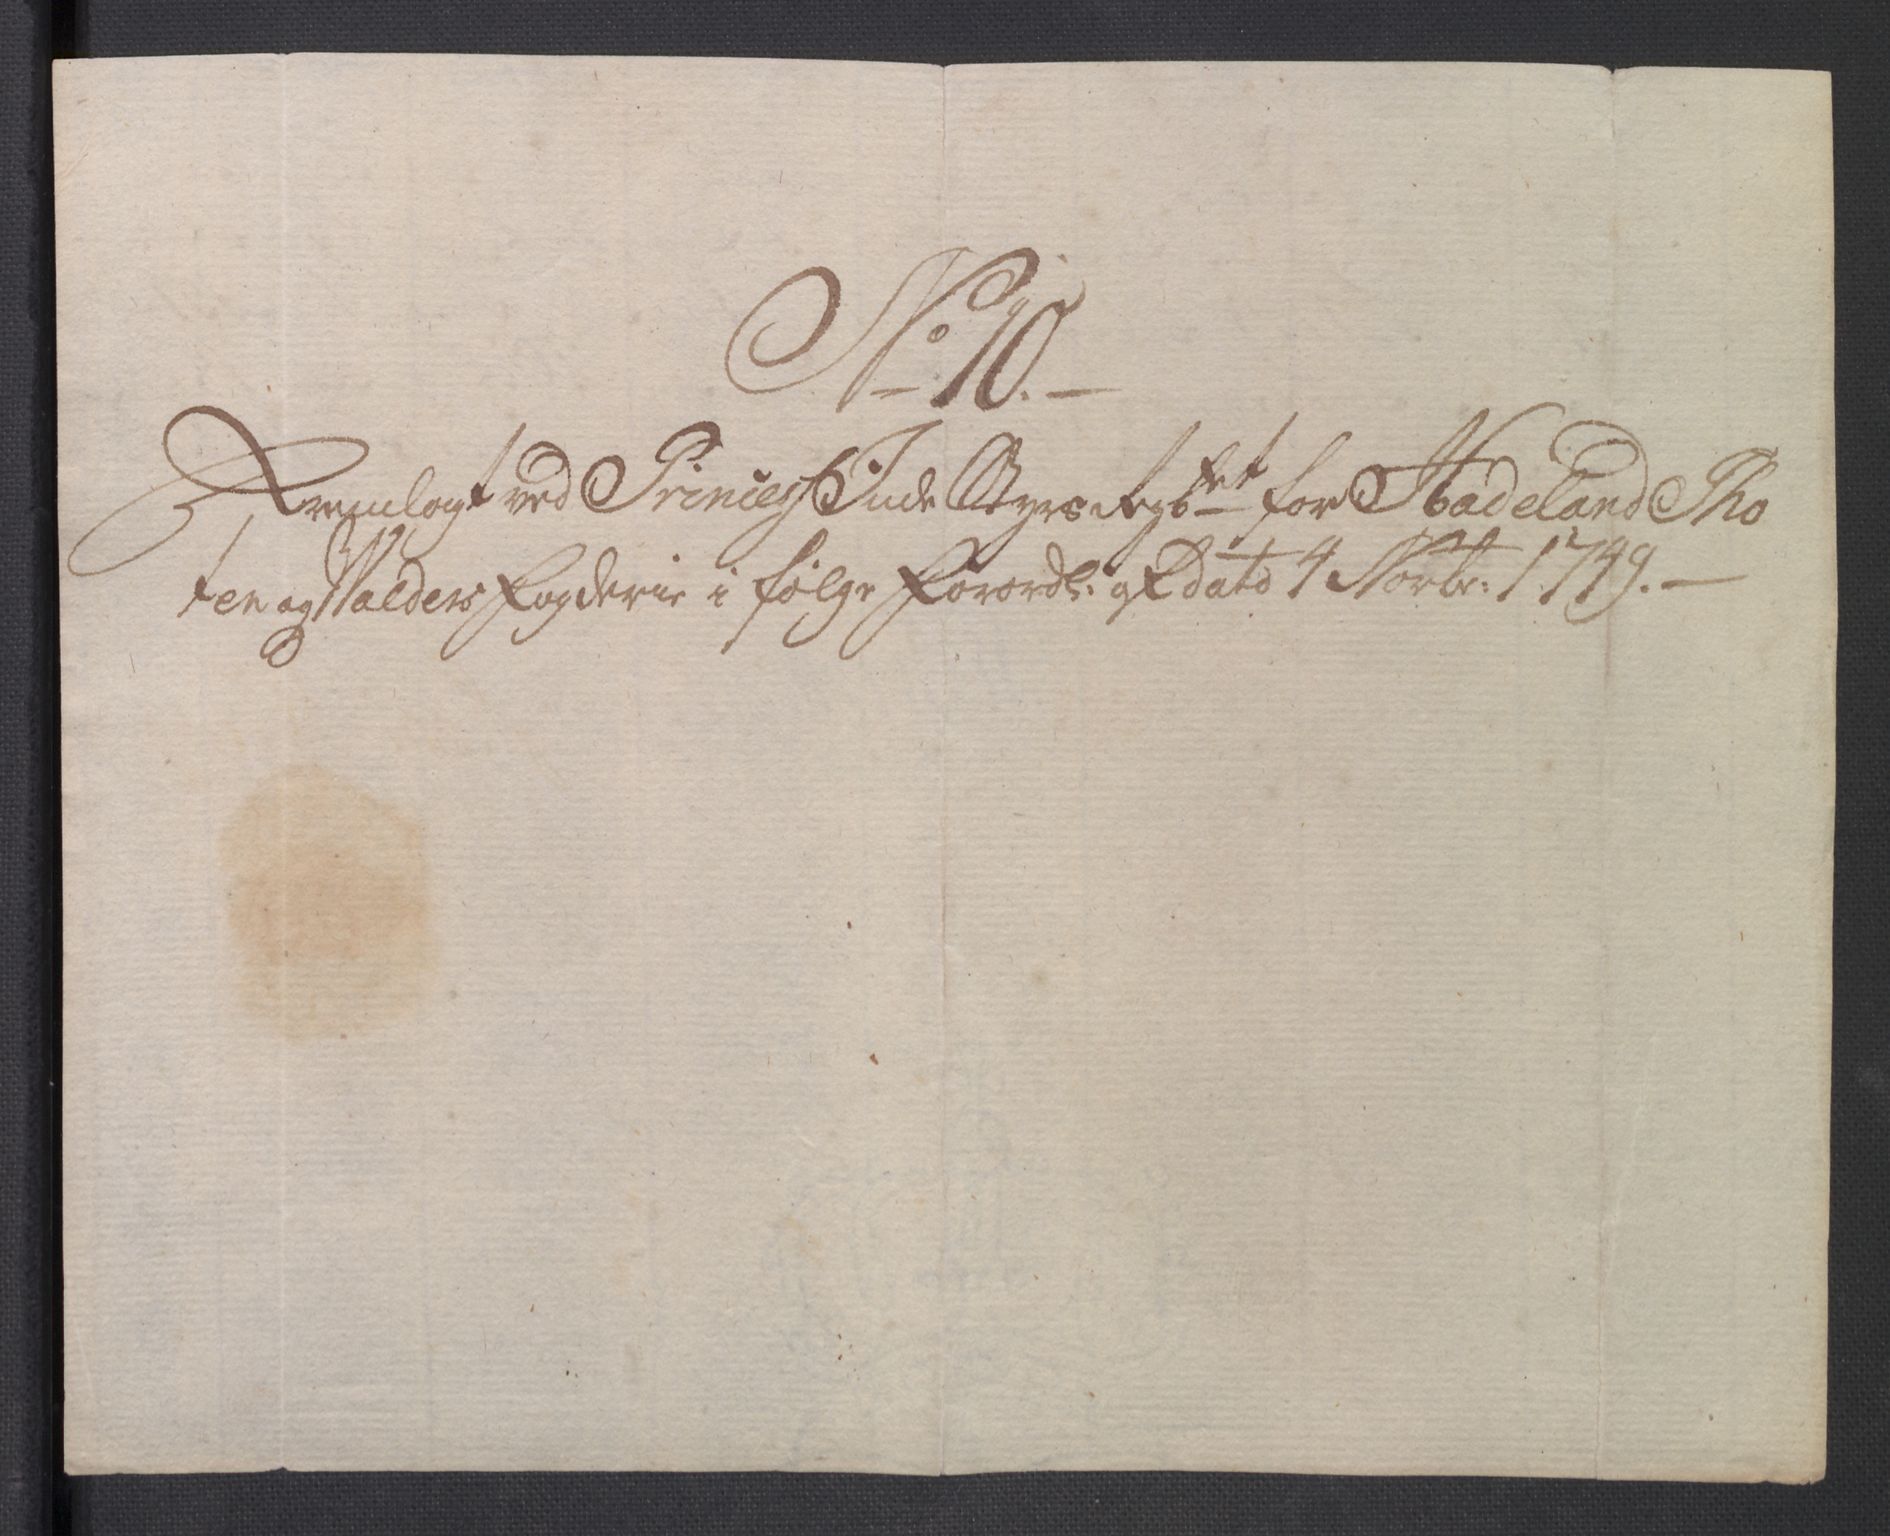 No 10.
Fremlagt ved Princesse Inde Styrs Regskbet for Hadeland Tho
ten og Walders Fogderie i følge Forordn: af dato 4 Novbr: 1749.